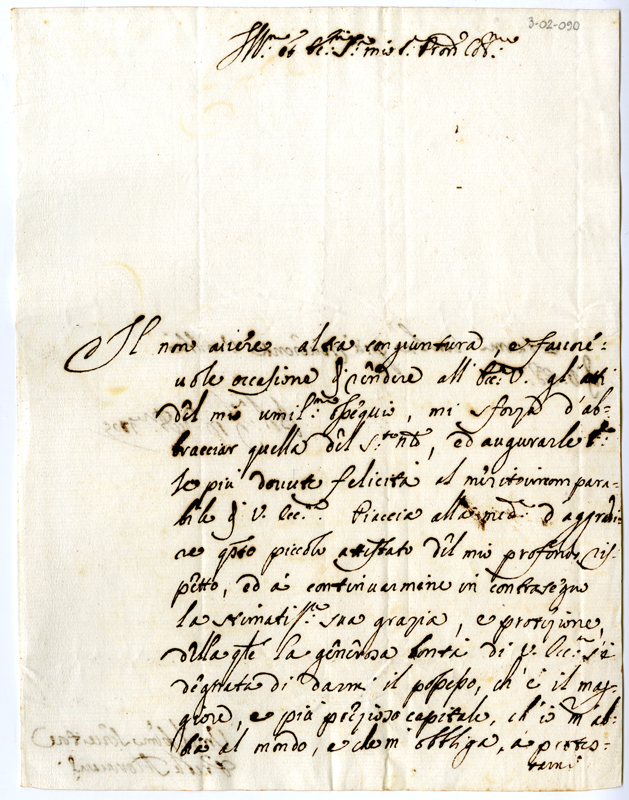 3-02-090
Ill.mo et Ecc.mo S.r mio P.ron Col.mo
Il non aviére altra congiuntura, e favoré-
uole occasione p rendere all' Ecc.a V. gl'atti
del mio umil.mo ossequio, mi sforza d'ab-
bracciar quella del S.to Nle, ed augurarle
le più dovute felicità al merito incompara-
bile di V. Ecc.a Piaccia alla med.a d'aggradi-
re qsto piccolo attestato del mio profondo ris-
petto, ed à continuarmene in contrasegno
la stimatiss.ma sua grazia, e protezione,
della qle la generosa bontà di V. Ecc.a si è
degnata di darmi il possesso, ch'è il mag-
giore, e più prezioso capitale, ch'io m'ab-
bia al mondo, e che m'obbliga, à protes-
tarmi